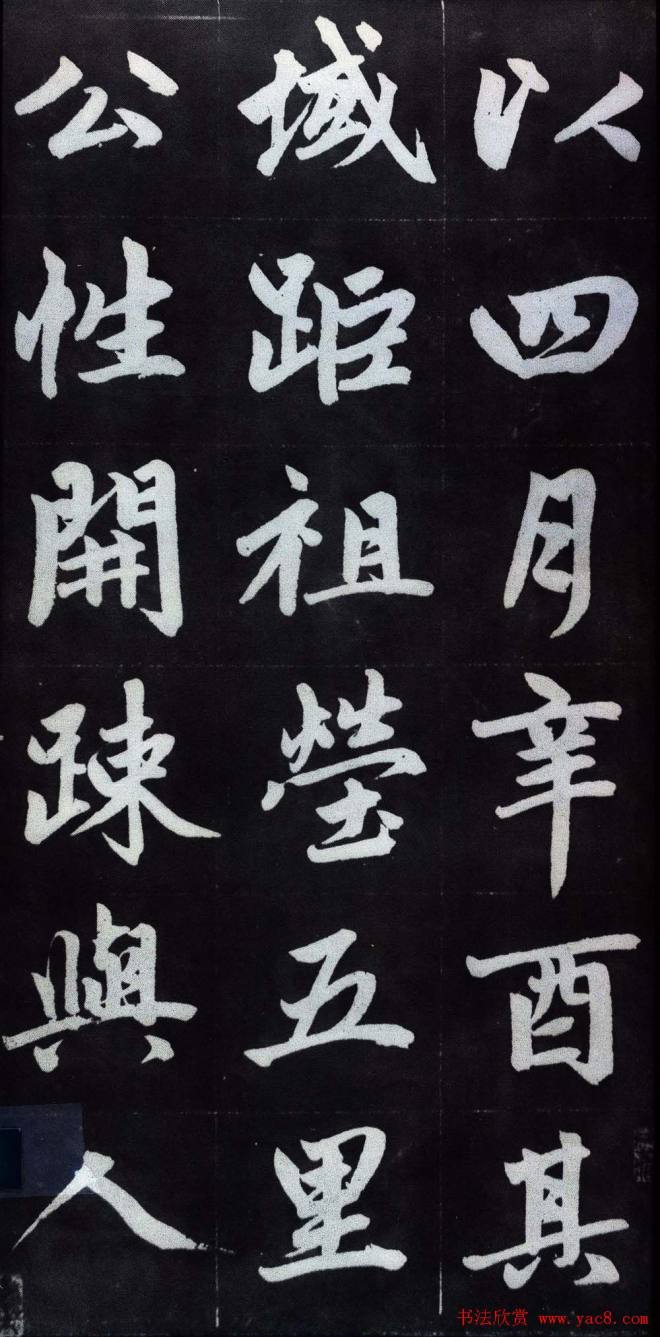 以四月辛酉其
域距祖塋五里
公性開踈與人
书法欣赏 www.yac8.com